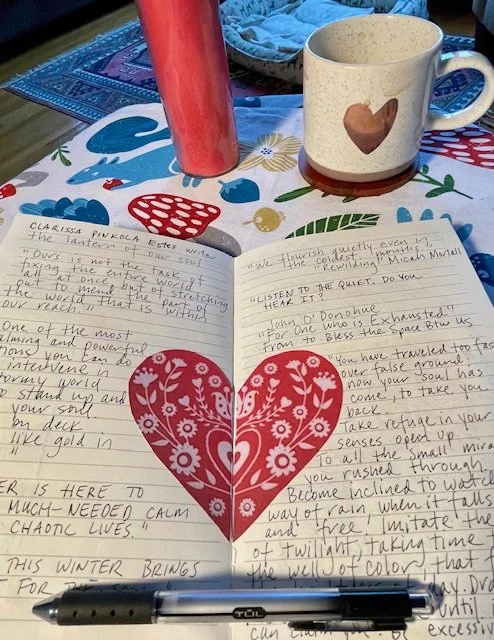 CLARISSA PINKOLA Estes writer
the lantern of our soul
"Ours is not the task of
fixing the entire world
all at once, but of stretching
out to mend the part of
the world that is within
our reach."
One of the most
calming and powerful
you can do
intervene in
stormy world
to stand up and
your soul
on deck
like gold in
"
IS HERE TO
MUCH-NEEDED CALM
CHAOTIC LIVES."
THIS WINTER BRINGS
FOR THE
"We flourish quietly even in
the coldest months"
"Rewilding" Micah Mortali
"LISTEN TO THE QUIET. DO YOU
HEAR IT?
"John O'Donohue
"For One who is Exhausted"
from To Bless the Space Btw Us
"You have traveled too fast
over false ground;
now your soul has
come, to take you
back.
Take refuge in your
senses, open up
to all the small
you rushed through.
Become inclined to watch
way of rain, when it falls
and free. Imitate the
of twilight, taking time
the well of color that
day. Dra
until
excessiv
TUL